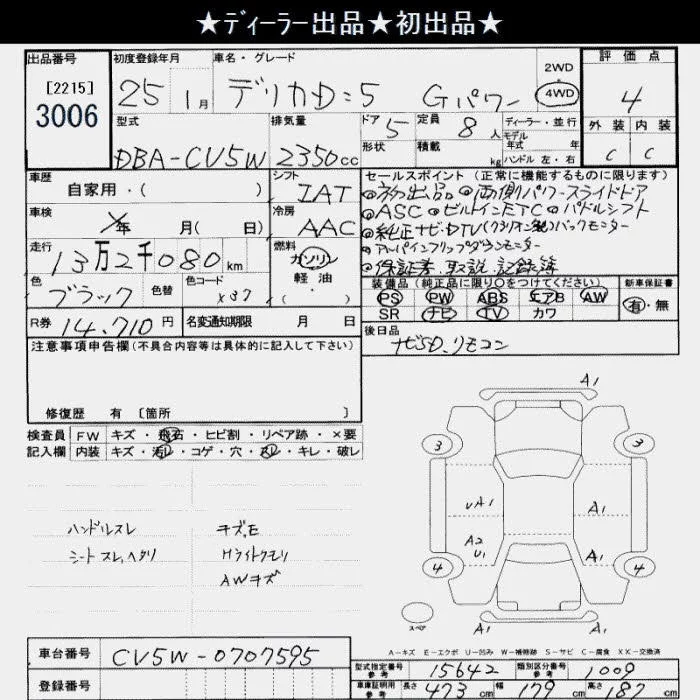 ★ディーラー出品★初出品★
出品番号
[2215]
3006
初度登録年月
25 1月
車名・グレード
デリカD:5 Gパワー
2WD
4WD
評価点
4
外装 内装
C C
型式
DBA-CV5W
排気量
2350cc
ドア 5
形状
定員 8人
積載 kg
ディーラー・並行
モデル
年式 年
ハンドル 左・右
車歴
自家用・( )
シフト
IAT
車検
年 月( 日)
冷房
AAC
走行
13万2千080km
燃料
ガソリン
軽油
・
( )
色
ブラック
色替
色コード
X37
R券 14.710円
名変通知期限 月 日
セールスポイント(正常に機能するものに限ります)
◎初出品◎両側パワースライドドア
◎ASC◎ビルトインETC◎パドルシフト
◎純正ナビ・DTV(クラリオン製)バックモニター
◎保証書、取説、記録簿
装備品(純正品に限り○をつけてください)
新車保証書
PS PW ABS エアB AW
SR ナビ TV カワ
有・無
後日品
ナビSD、リモコン
注意事項申告欄(不具合内容等は具体的に記入して下さい)
修復歴 有 [箇所 ]
検査員
記入欄
FW キズ・飛石・ヒビ割・リペア跡・×要
内装 キズ・汚レ・コゲ・穴・スレ・キレ・破レ
ハンドルスレ
シートスレ、ヘタリ
キズ、E
Hライトクモリ
AWキズ
A1
3
3
UA1
A1
A2
U1
A1
4
4
スペア
A1
A1
A−キズ E−エクボ U−凹み W−補修跡 S−サビ C−腐食 XX−交換済
車台番号
CV5W-0707595
登録番号
型式指定番号
参考
15642
類別区分番号
参考
1009
車庫証明用
参考
長さ 473cm
幅 179cm
高さ 187cm